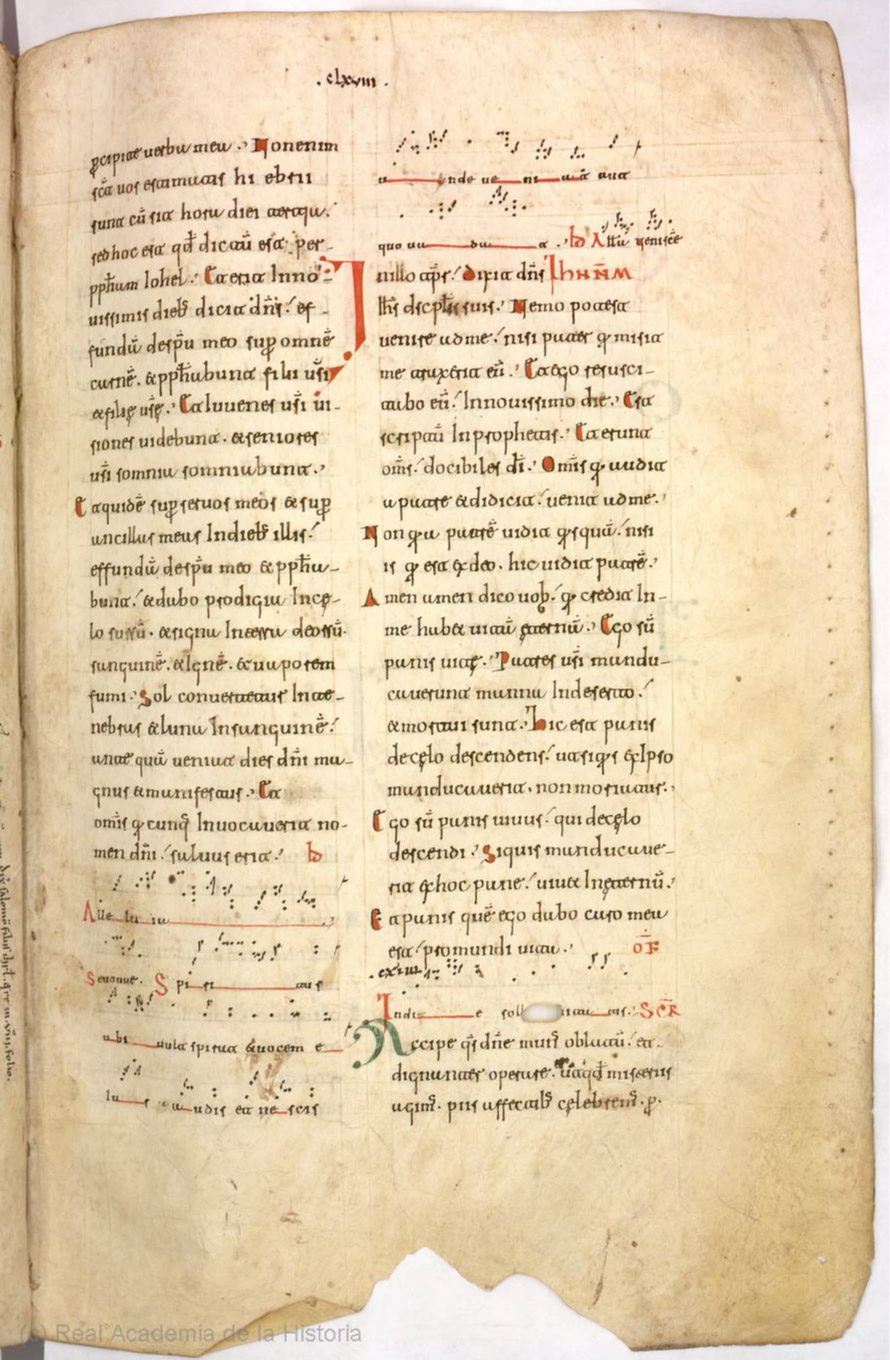 .clxviii.
percipite uerba mea. Non enim
sc̄a uos estimatis hi ebrii
sunt cū sit hora diei tertia.
sed hoc est qd̄ dictū est. per
pph̄am Iohel. Et erit In no
uissimis dieb; dicit dn̄s. ef
fundā de sp̄u meo super omnē
carnē. et pph̄abunt filii ūsi
et filie ūse. Et iuuenes ūsi ui
siones uidebunt. et seniores
ūsi somnia somniabunt.
Et quidē super seruos meos et super
ancillas meas In dieb; illis.
effundā de sp̄u meo et pph̄a
bunt. et dabo prodigia In ce
lo sursū. et signa In terra deorsū.
sanguinē. et Ignē. et uaporem
fumi. Sol conuertetur In te
nebras et luna In sanguinē.
ante quā ueniat dies dn̄i ma
gnus et manifestus. Et
omīs qcunq; Inuocauerit no
men dn̄i. saluus erit.
Alleluia
Spiritus
ubi uult spirat et uocem e
ius audis et nescis
unde ueniat aut
quo uadat. Allā Ueni sc̄e
In illo tp̄r. Dixit dn̄s IHS
Ih̄s discplis suis. Nemo potest
uenire ad me. nisi pater q misit
me atraxerit eū. Et ego resusci
tabo eū. In nouissimo die. Est
scriptū In prophetis. Et erunt
om̄s. docibiles dī. Omīs q audit
a patre et didicit. uenit ad me.
Non q̄a patrē uidit q̄squā. nisi
is q̄ est ex deo. hic uidit patrē.
Amen amen dico uob. q̄ credit In
me habet uitā eternā. Ego sū
panis uite. Patres ūsi mandu
cauerunt manna In deserto.
et mortui sunt. Hic est panis
de celo descendens. ut siq̄s ex Ipso
manducauerit. non moriatur.
Ego sū panis uiuus. qui de celo
descendi. Siquis manducaue
rit ex hoc pane. uiuet In eternū.
Et panis quē ego dabo caro mea
est. pro mundi uita. OF̄
In die soll itatis. SCR̄
Accipe q̄s dn̄e mun̄s oblatū. et
dignanter operare. ut qd̄ misteriis
agim̄. piis affectib; celebrem̄. p.
(c) Real Academia de la Historia